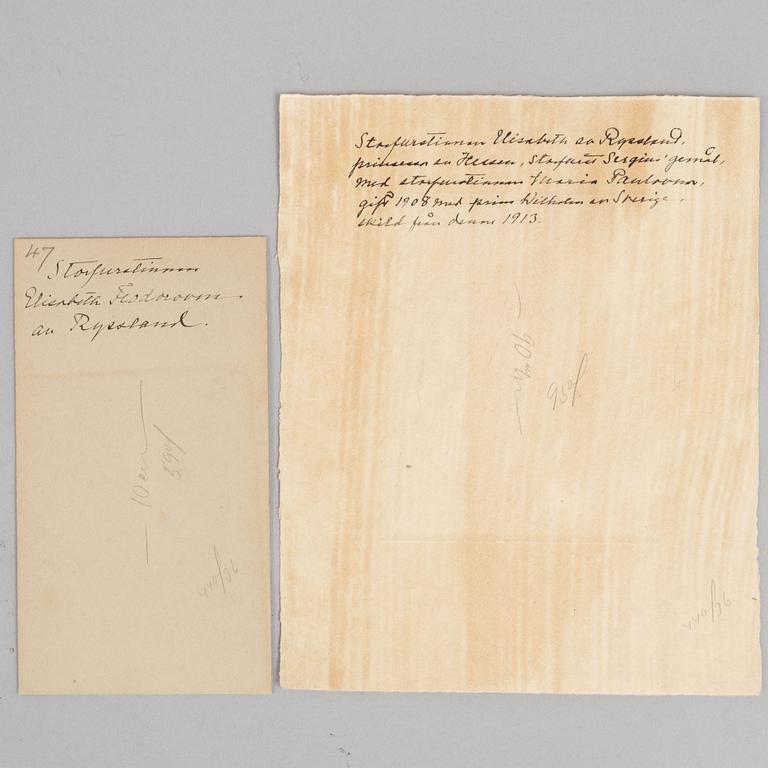 47
Storfurstinnan
Elisabeth Feodorovna
av Ryssland.
10 cm
59%
440/36
Storfurstinnan Elisabeth av Ryssland,
prinsessa av Hessen, Storfurst Sergius' gemål,
med storfurstinnan Maria Paulovna,
gift 1908 med prins Wilhelm av Sverige,
skild från denne 1913.
95%
440/36